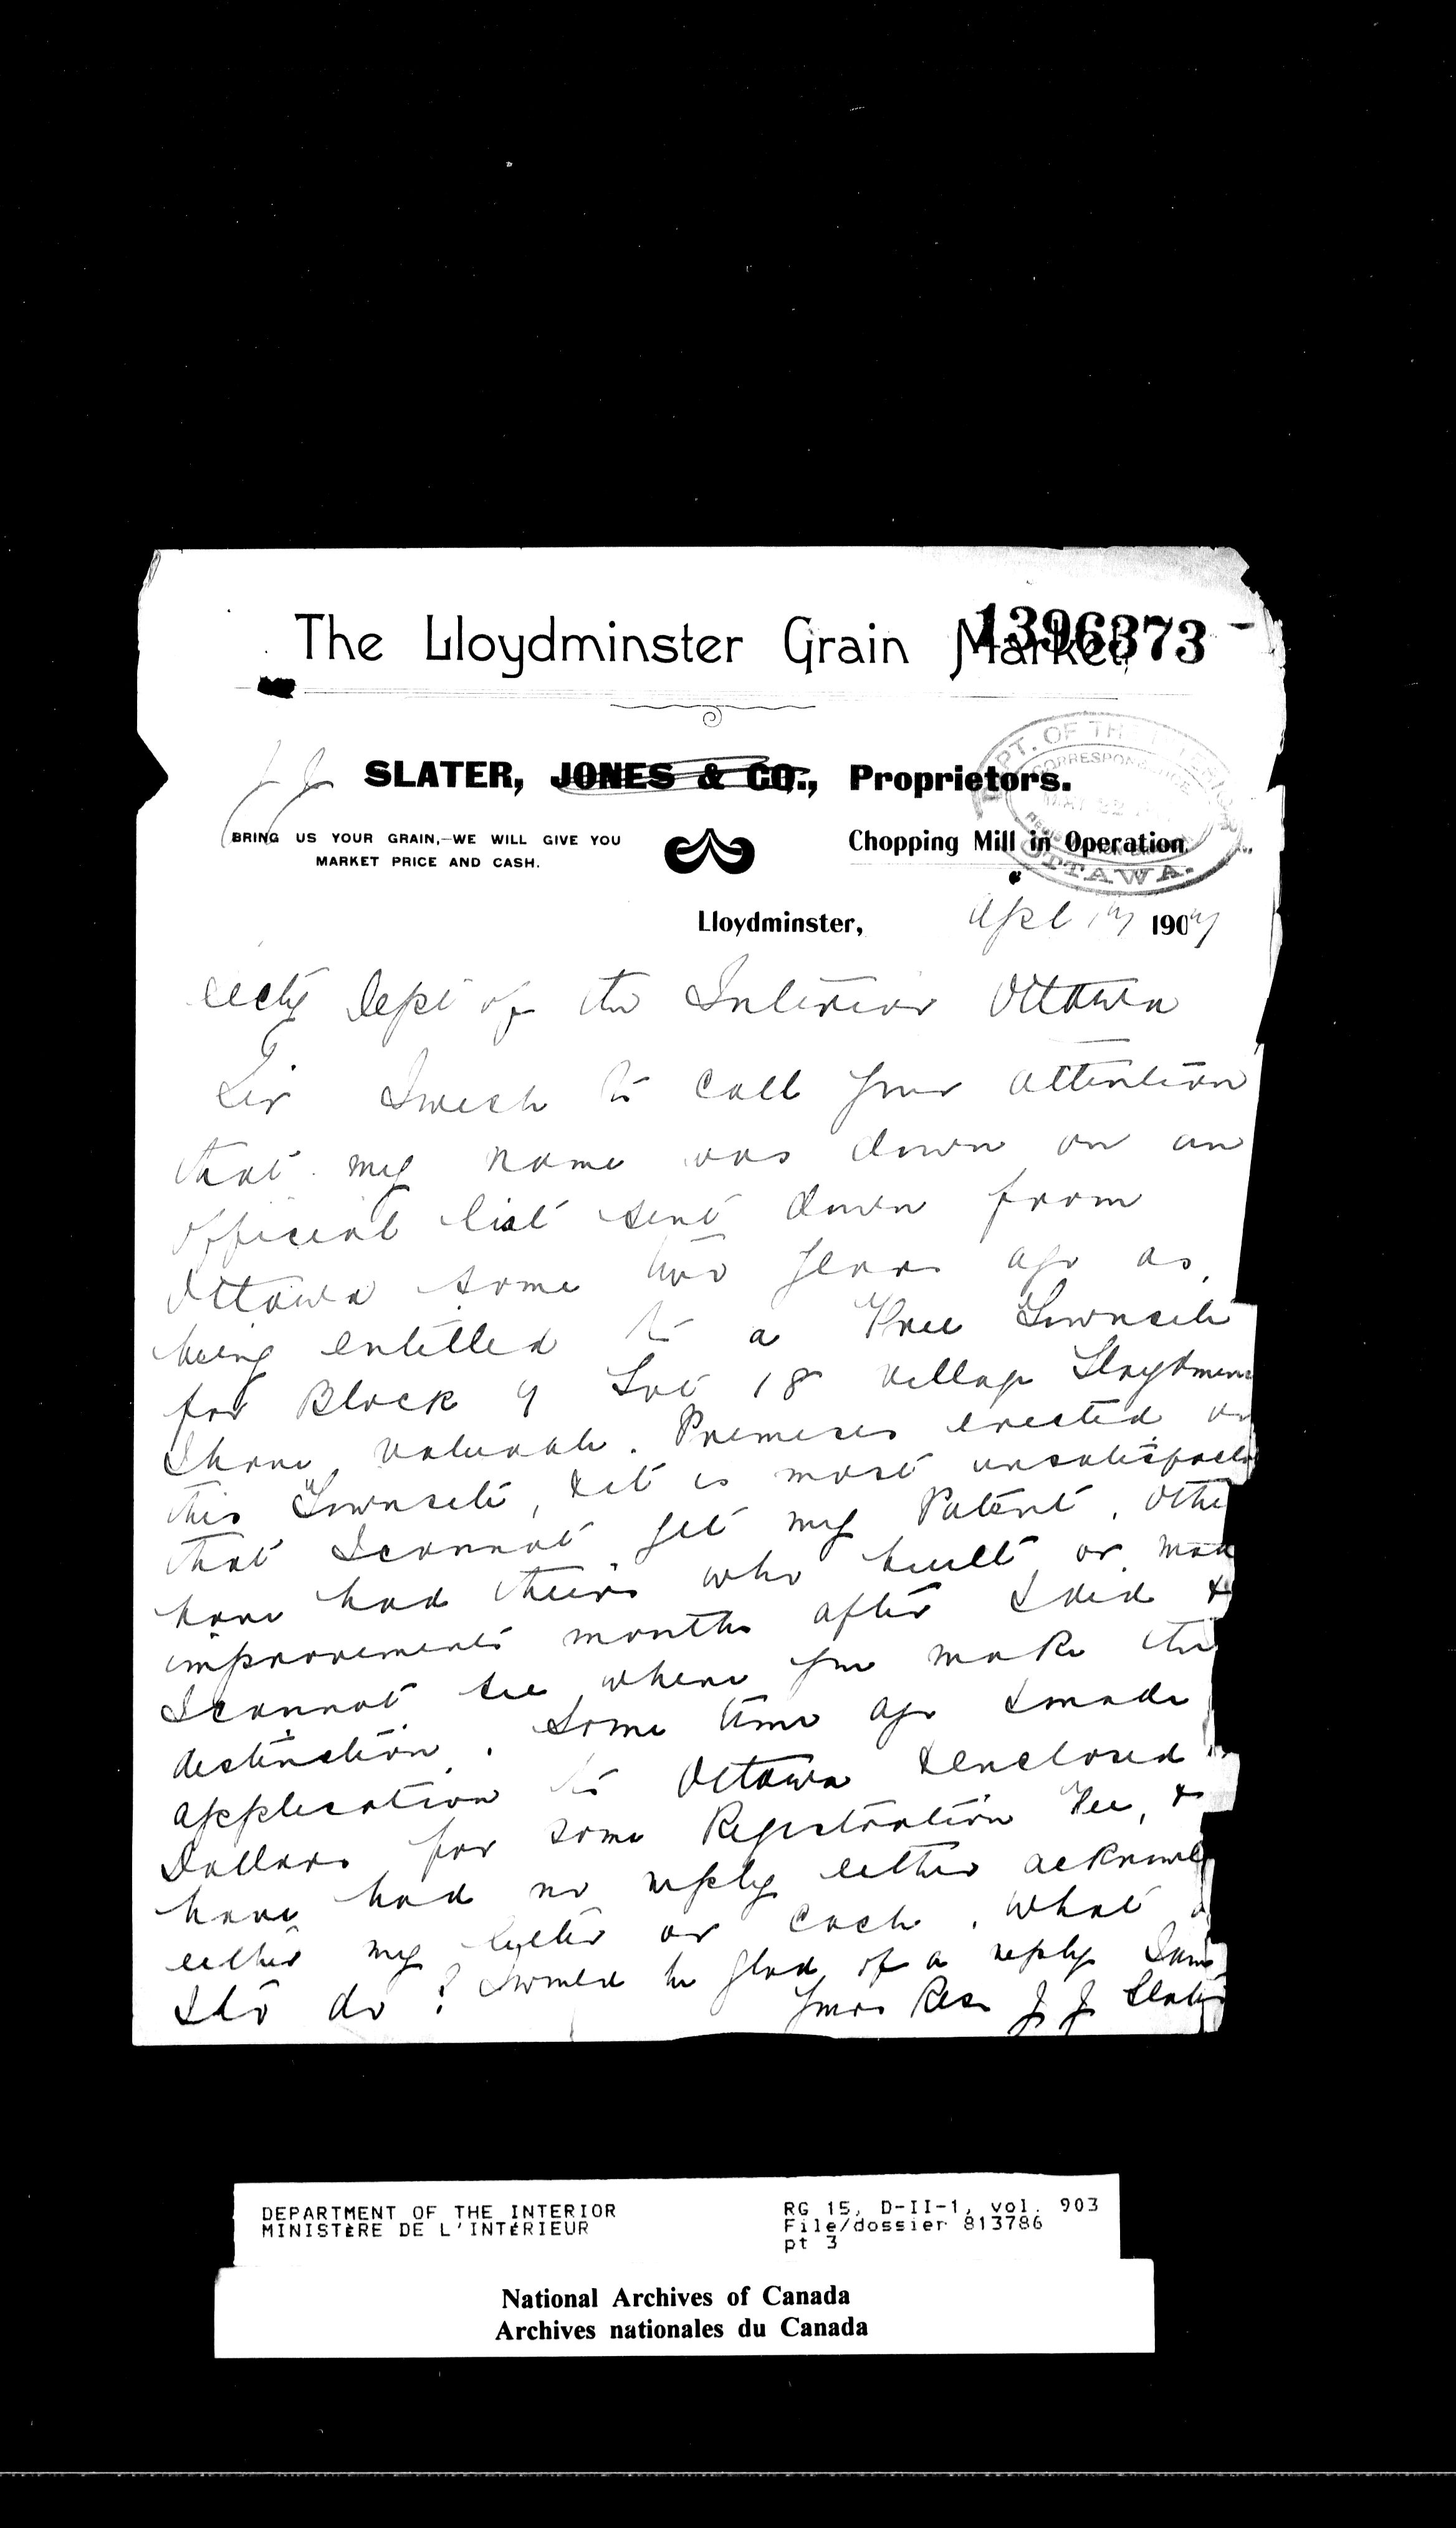 The Lloydminster Grain Market.
1396373
J J SLATER, JONES & CO., Proprietors.
DEPT. OF THE INTERIOR
CORRESPONDENCE
MAY 22
OTTAWA.
BRING US YOUR GRAIN,—WE WILL GIVE YOU
MARKET PRICE AND CASH.
Chopping Mill in Operation
Lloydminster, Apl 17 1907
Secty Dept of the Interior Ottawa
Sir I wish to call your attention
that my name was down on an
official list sent down from
Ottawa some two years ago as
being entitled to a Free Townsite
for Block 9 Lot 18 village Lloydmins
I have valuable Premises erected on
this Townsite, & it is most unsatisfacto
that I cannot get my Patent. Othe
have had theirs who built or mad
improvements months after I did &
I cannot see where you make the
distinction. Some time ago I made
application to Ottawa & enclosed
Dollars for some Registration Fee, &
have had no reply either acknowl
either my letter or cash. What
I to do? I would be glad of a reply I am
Yours Resp J J Slater
DEPARTMENT OF THE INTERIOR
MINISTÈRE DE L'INTÉRIEUR
RG 15, D-II-1, vol. 903
File/dossier 813786
pt 3
National Archives of Canada
Archives nationales du Canada